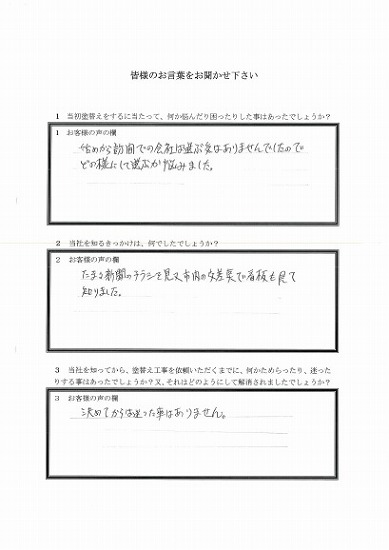 皆様のお言葉をお聞かせ下さい
1 当初塗替えをするに当たって、何か悩んだり困ったりした事はあったでしょうか?
1 お客様の声の欄
始めから訪問での会社は選ぶ気はありませんでしたので
どの様にして選ぶか悩みました。
2 当社を知るきっかけは、何でしたでしょうか?
2 お客様の声の欄
たまる新聞のチラシを見又市内の交差点で看板も見て
知りました。
3 当社を知ってから、塗替え工事を依頼いただくまでに、何かためらったり、迷った
りする事はあったでしょうか?又、それはどのようにして解消されましたでしょうか?
3 お客様の声の欄
決めてからは迷った事はありません。